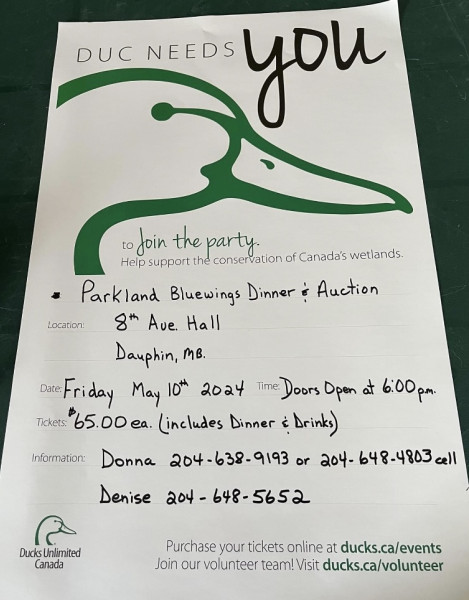 DUC NEEDS you
to Join the party.
Help support the conservation of Canada's wetlands.
Parkland Bluewings Dinner & Auction
Location: 8th Ave. Hall
Dauphin, MB.
Date: Friday May 10th 2024 Time: Doors Open at 6:00 p.m.
Tickets: $65.00 ea. (includes Dinner & Drinks)
Information: Donna 204-638-9193 or 204-648-4803 cell
Denise 204-648-5652
Ducks Unlimited
Canada
Purchase your tickets online at ducks.ca/events
Join our volunteer team! Visit ducks.ca/volunteer